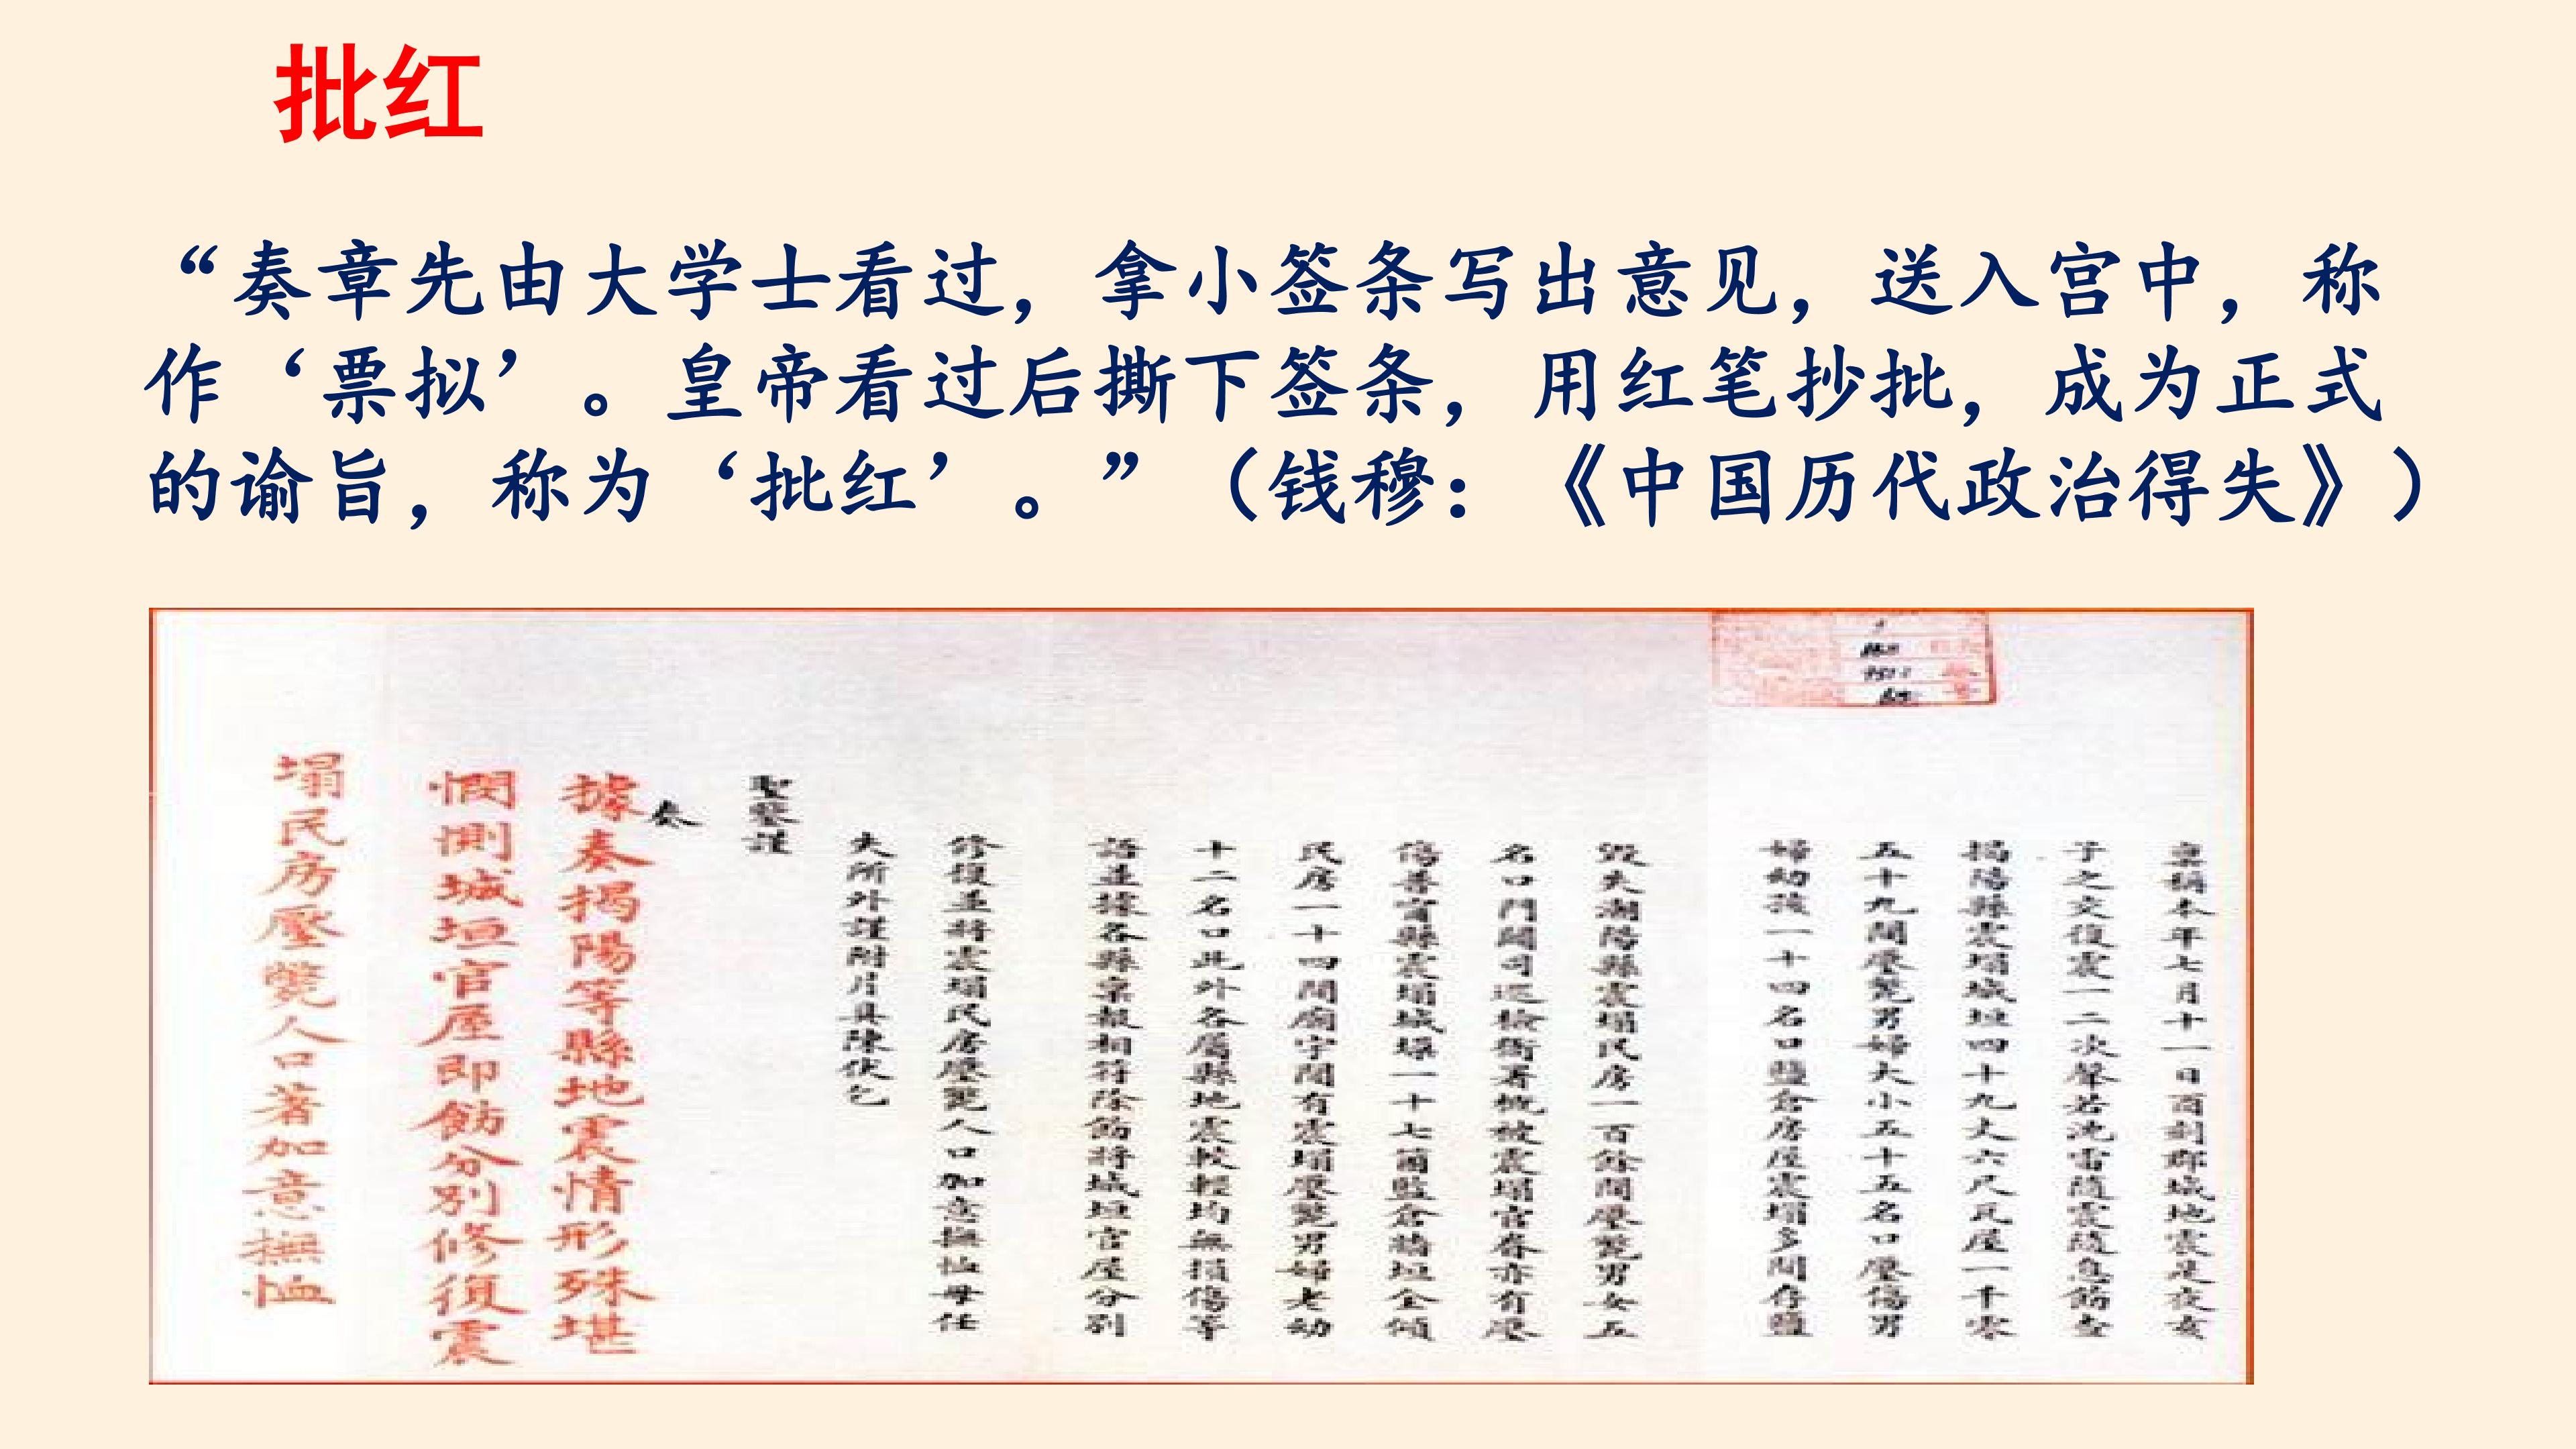 批红
“奏章先由大学士看过，拿小签条写出意见，送入宫中，称
作‘票拟’。皇帝看过后撕下签条，用红笔抄批，成为正式
的谕旨，称为‘批红’。”（钱穆：《中国历代政治得失》）
稟稱本年七月十一日酉刻郡城地震是夜亥
子之交復震一二次聲若沈雷隨震隨息飭查
揭陽縣震塌城垣四十九丈六尺民屋一千零
五十九間壓斃男婦大小五十五名口壓傷男
婦幼孩一十四名口鹽倉房屋震塌多間存鹽
毀失潮陽縣震塌民房一百餘間壓斃男女五
名口門闢司巡檢衙署概被震塌官眷亦有壓
傷普寧縣震塌城垜一十七箇監倉牆垣全傾
民房一十四間廟宇間有震塌壓斃男婦老幼
十二名口此外各屬縣地震較輕均無損傷等
語並據各縣稟報相符除飭將城垣官屋分別
修復並將震塌民房壓斃人口加意撫恤毋任
失所外謹附片具陳伏乞
聖鑒謹
奏
據奏揭陽等縣地震情形殊堪
憫惻城垣官屋即飭分別修復震
塌民房壓斃人口著加意撫恤